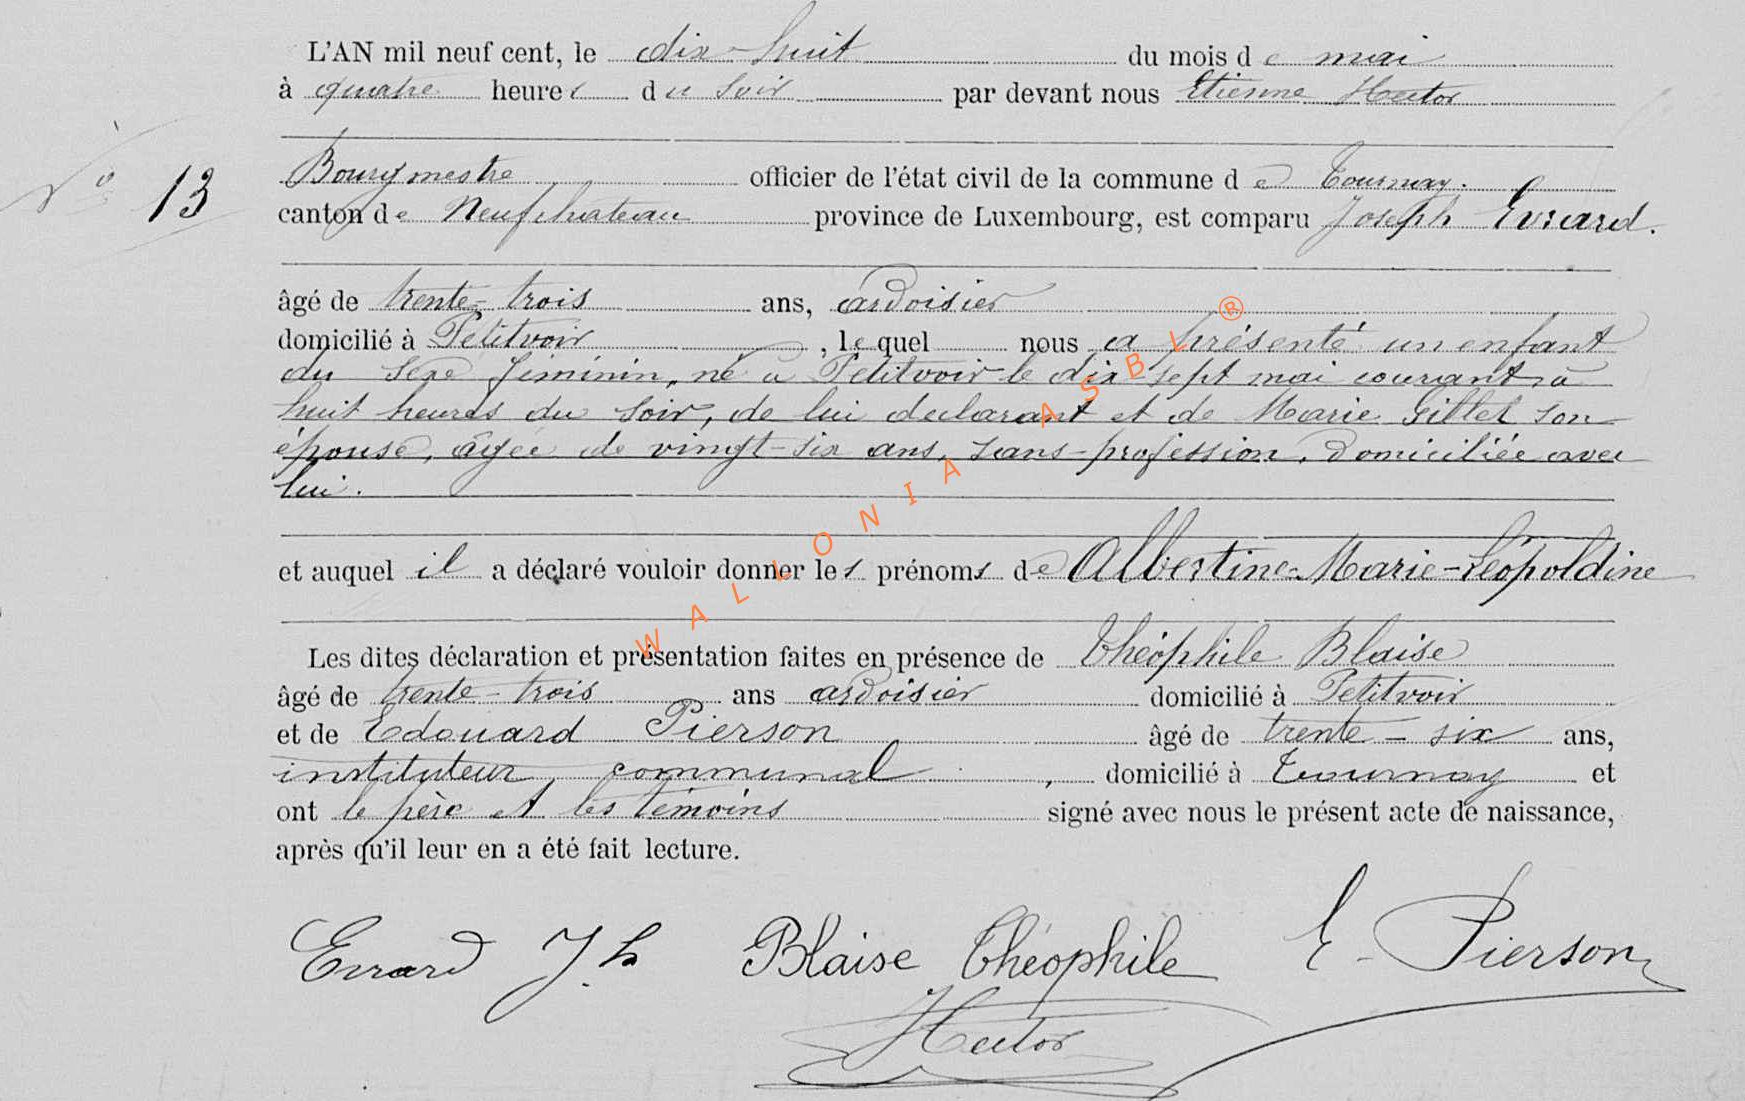 L'AN mil neuf cent, le dix-huit du mois de mai
à quatre heures du soir par devant nous Etienne Hector
N° 13
Bourgmestre officier de l'état civil de la commune de Tournay.
canton de Neufchateau province de Luxembourg, est comparu Joseph Evrard.
âgé de trente-trois ans, ardoisier
domicilié à Petitvoir, lequel nous a présenté un enfant
du sexe féminin, né à Petitvoir le dix-sept mai courant, à
huit heures du soir, de lui declarant et de Marie Gillet son
épouse, agée de vingt-six ans, sans-profession, Domiciliée avec
lui.
et auquel il a déclaré vouloir donner les prénoms de Albertine-Marie-Léopoldine
Les dites déclaration et présentation faites en présence de Théophile Blaise
âgé de trente-trois ans ardoisier domicilié à Petitvoir
et de Edouard Pierson âgé de trente-six ans,
instituteur communal, domicilié à Tournay et
ont le père et les témoins signé avec nous le présent acte de naissance,
après qu'il leur en a été fait lecture.
Evrard J.h Blaise Théophile E. Pierson
Hector
WALLONIA ASBL ®